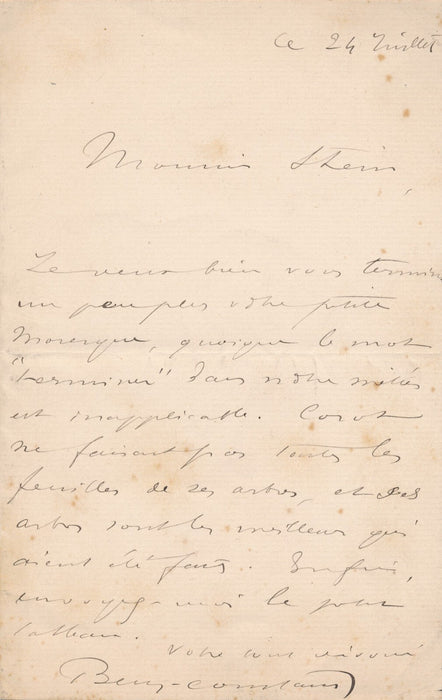 Ce 24 Juillet
Monsieur Stein,
Je veux bien vous terminer
un peu plus votre petite
Moresque, quoique le mot
"terminer" dans notre métier
est inapplicable. Corot
ne faisait pas toutes les
feuilles de ses arbres, et ses
arbres sont les meilleurs qui
aient été faits. Enfin,
envoyez-moi le petit
tableau.
Votre tout dévoué
Benj-Constant